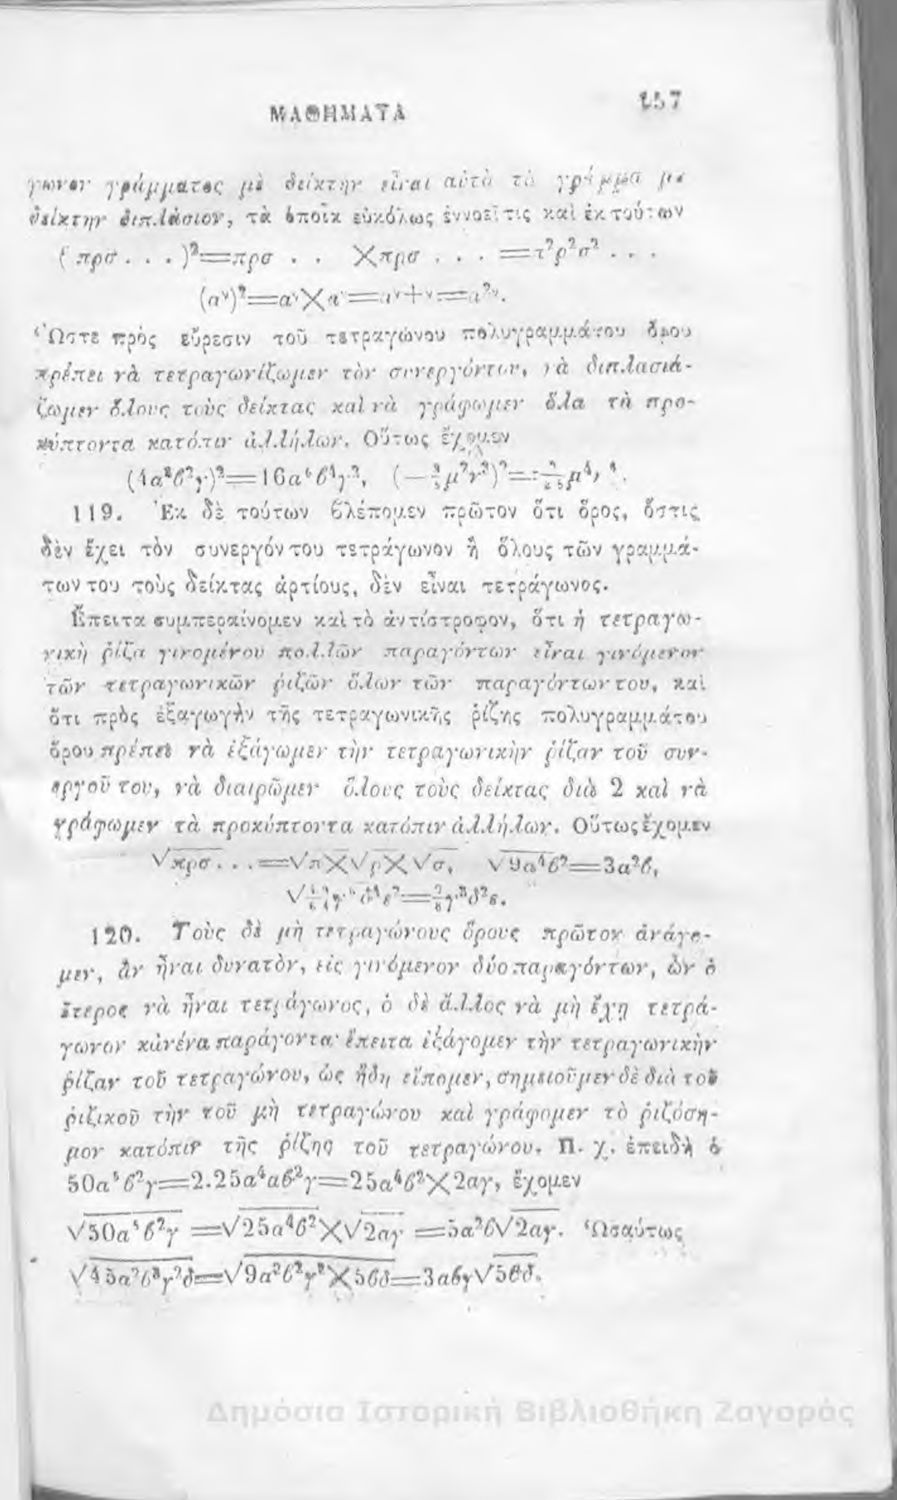 ΜΑΘΗΜΑΤΑ 157
γωνον γράμματος μὲ δείκτην εἶναι αὐτὸ τὸ γράμμα μὲ
δείκτην διπλάσιον, τὰ ὁποῖα εὐκόλως ἐννοεῖ τις καὶ ἐκ τούτων
(πρσ . . . )²=πρσ . . ✕πρσ . . . =π²ρ²σ² . . .
(αᵛ)²=αᵛ✕αᵛ=αᵛ+ᵛ=α²ᵛ.
Ὥστε πρὸς εὕρεσιν τοῦ τετραγώνου πολυγραμμάτου ὅρου
πρέπει νὰ τετραγωνίζωμεν τὸν συνεργόντου, νὰ διπλασιά-
ζωμεν ὅλους τοὺς δείκτας καὶ νὰ γράφωμεν ὅλα τὰ προ-
κύπτοντα κατόπιν ἀλλήλων. Οὕτως ἔχομεν
(4α³ϐ²γ)²=16α⁶ϐ⁴γ²,
119. Ἐκ δὲ τούτων ϐλέπομεν πρῶτον ὅτι ὅρος, ὅστις
δὲν ἔχει τὸν συνεργόν του τετράγωνον ἢ ὅλους τῶν γραμμά-
των του τοὺς δείκτας ἀρτίους, δὲν εἶναι τετράγωνος.
Ἔπειτα συμπεραίνομεν καὶ τὸ ἀντίστροφον, ὅτι ἡ τετραγω-
νικὴ ῥίζα γινομένου πολλῶν παραγόντων εἶναι γινόμενον
τῶν τετραγωνικῶν ῥιζῶν ὅλων τῶν παραγόντων του, καὶ
ὅτι πρὸς ἐξαγωγὴν τῆς τετραγωνικῆς ῥίζης πολυγραμμάτου
ὅρου πρέπει νὰ ἐξάγωμεν τὴν τετραγωνικὴν ῥίζαν τοῦ συν-
εργοῦ του, νὰ διαιρῶμεν ὅλους τοὺς δείκτας διὰ 2 καὶ νὰ
γράφωμεν τὰ προκύπτοντα κατόπιν ἀλλήλων. Οὕτως ἔχομεν
√πρσ . . . =√π✕√ρ✕√σ, √9α⁴ϐ²=3α²ϐ,
120. Τοὺς δὲ μὴ τετραγώνους ὅρους πρῶτον ἀνάγο-
μεν, ἂν ἦναι δυνατὸν, εἰς γινόμενον δύο παραγόντων, ὧν ὁ
ἕτερος νὰ ἦναι τετράγωνος, ὁ δὲ ἄλλος νὰ μὴ ἔχῃ τετρά-
γωνον κἀνένα παράγοντα· ἔπειτα ἐξάγομεν τὴν τετραγωνικὴν
ῥίζαν τοῦ τετραγώνου, ὡς ἤδη εἴπομεν, σημειοῦμεν δὲ διὰ τοῦ
ῥιζικοῦ τὴν τοῦ μὴ τετραγώνου καὶ γράφομεν τὸ ῥιζόση-
μον κατόπιν τῆς ῥίζης τοῦ τετραγώνου. Π. χ. ἐπειδὴ ὁ
50α⁵ϐ²γ=2.25α⁴αϐ²γ=25α⁴ϐ²✕2αγ, ἔχομεν
√50α⁵ϐ²γ =√25α⁴ϐ²✕√2αγ =5α²ϐ√2αγ. Ὡσαύτως
√45α²ϐ³γ²δ=√9α²ϐ²γ²✕5ϐδ=3αϐγ√5ϐδ.
Δημόσια Ιστορική Βιβλιοθήκη Ζαγοράς